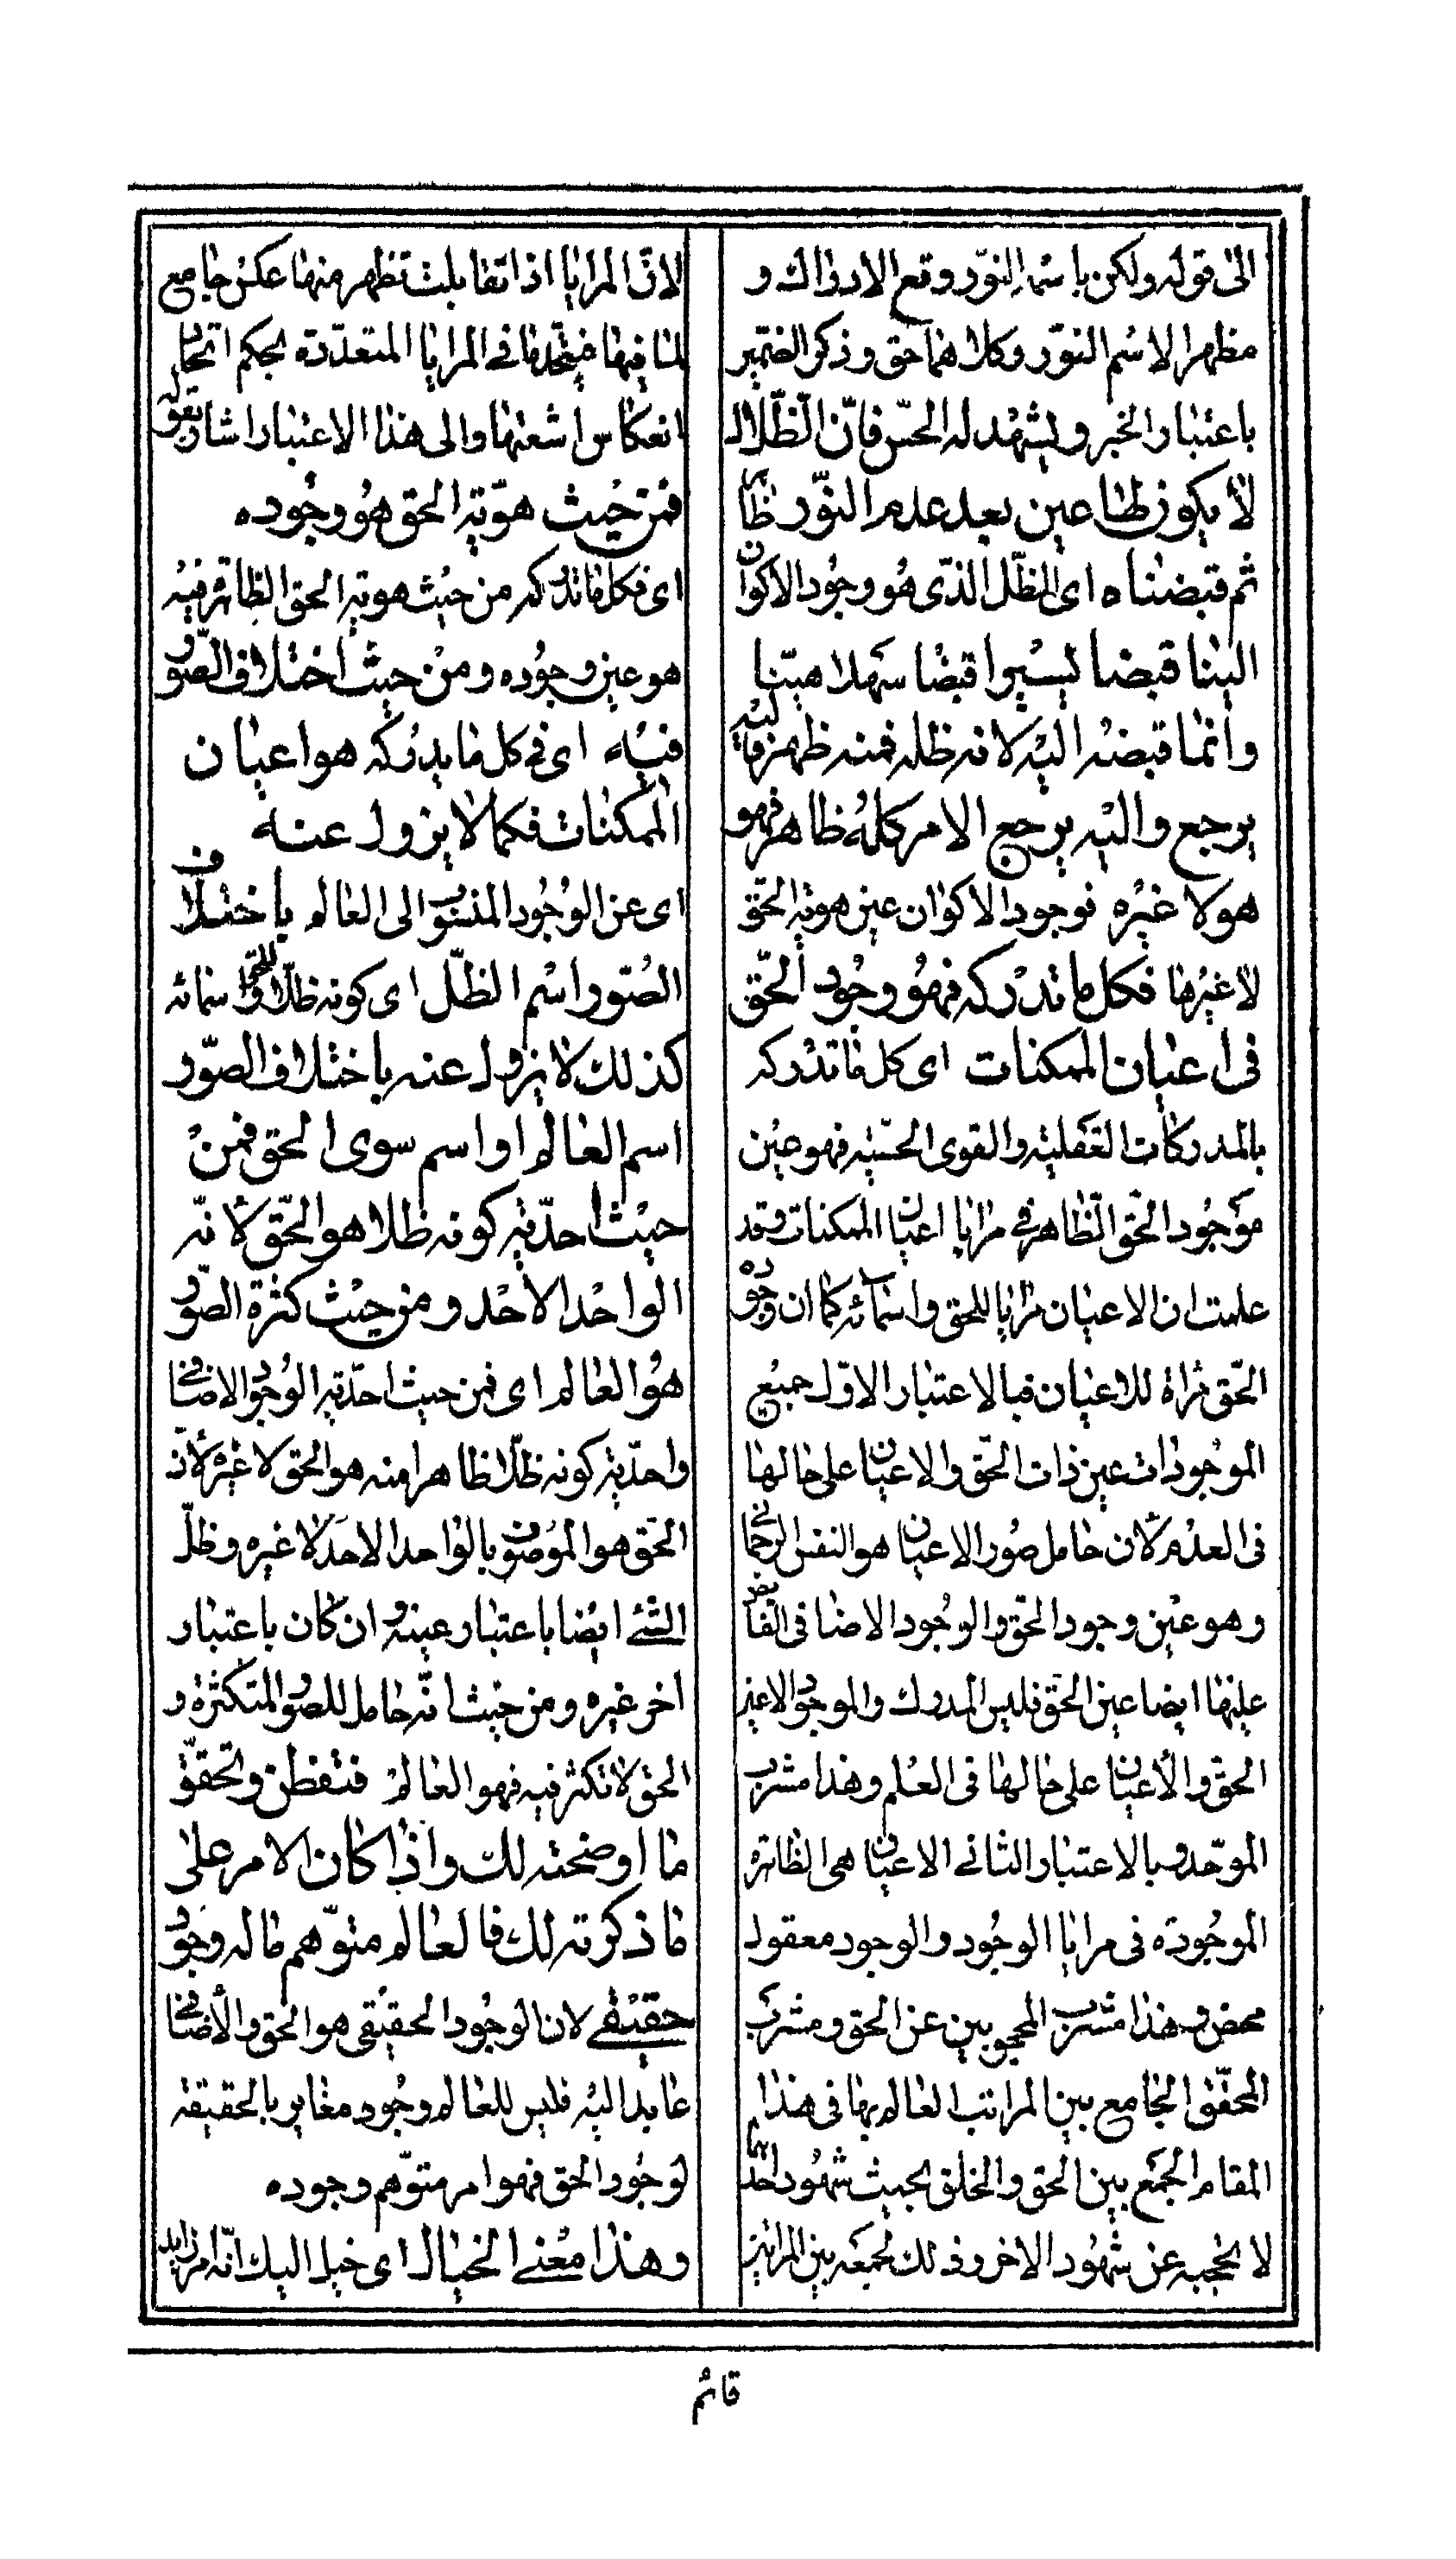 الى قوله ولكن باسمه النّور وقع الادراك و
مظهرا لاسم النّور وكلاهما حق وذكر الضّمير
باعتبار الخبر ويشهد له الحسّ فانّ الظّلال
لا يكون لها عين بعد عدم النّور ظاهرا
ثم قبضناه اى الظّل الذّى هو وجود الاكوان
الينا قبضا يسيرا قبضا سهلا هيّنا
وانّما قبضه اليه لانه ظله فمنه ظهر واليه
يرجع واليه يرجع الامر كله ظاهر فهو
هو لا غيره فوجود الاكوان عين هويّة الحّق
لا غيرها فكل ما تدركه فهو وجود الحّق
فى اعيان الممكنات اى كل ما تدركه
بالمدركات العقليّة والقوى الحسّيّة فهو عين
موجود الحّق الظّاهر فى مرايا اعيان الممكنات وقد
علمت ان الاعيان مرايا للحق واسمائه كما ان وجود
الحّق مراة للاعيان فبالاعتبار الاوّل جميع
الموجودات عين ذات الحّق والاعيان على حالها
فى العدم لان حامل صور الاعيان هو النفس الرحمانى
وهو عين وجود الحّق والوجود الاضافى الفايض
عليها ايضا عين الحّق فليس المدرك والموجود الا عين
الحّق والاعيان على حالها فى العلم وهذا مشرب
الموحّد وبالاعتبار الثانى الاعيان هى الظاهرة
الموجودة فى مرايا الوجود والوجود معقول
محض وهذا مشرب المحجوبين عن الحق ومشرب
المحقّق الجامع بين المراتب العالم بها فى هذا
المقام الجمع بين الحق والخلق بحيث شهود احدهما
لا يحجبه عن شهود الاخر وذلك لجمعه بين المراتين
لانّ المرايا اذا تقابلت تظهر منها عكس جامع
لما فيها فيتّحد ما فى المرايا المتعدّدة بحكم اتحاد
انعكاس اشعتها والى هذا الاعتبار اشار بقوله
فمن حيث هوّية الحق هو وجوده
اى فكل ما تدركه من حيث هوية الحق الظاهرة فيه
هو عين وجوده ومن حيث اختلاف الصّور
فيه اى فى كل ما يدركه هو اعيان
الممكنات فكما لا يزول عنه
اى عن الوجود المنسوب الى العالم باختلاف
الصّور اسم الظّل اى كونه ظلّا للحق واسمائه
كذلك لا يزول عنه باختلاف الصّور
اسم العالم او اسم سوى الحق فمن
حيث احدّية كونه ظلا هو الحّق لانّه
الواحد الاحد ومن حيث كثرة الصّور
هو العالم اى فمن حيث احدّية الوجود الاضافى
واحدّية كونه ظلّا ظاهرا منه هو الحق لا غيره لانّ
الحّق هو الموصوف بالواحد الاحد لا غيره وظلّ
الشئ ايضا باعتبار عينه وان كان باعتبار
اخر غيره ومن حيث انّه حامل للصور المتكثرة و
الحق لا تكثر فيه فهو العالم فتفطن وتحقّق
ما اوضحته لك واذا كان الامر على
ما ذكرته لك فالعالم متوّهم ما له وجود
حقيقى لان الوجود الحقيقى هو الحّق والاضافى
عايد اليه فليس للعالم وجود مغاير بالحقيقة
لوجود الحّق فهو امر متوّهم وجوده
وهذا معنى الخيال اى خيل اليك انّه امر زايد
قائم